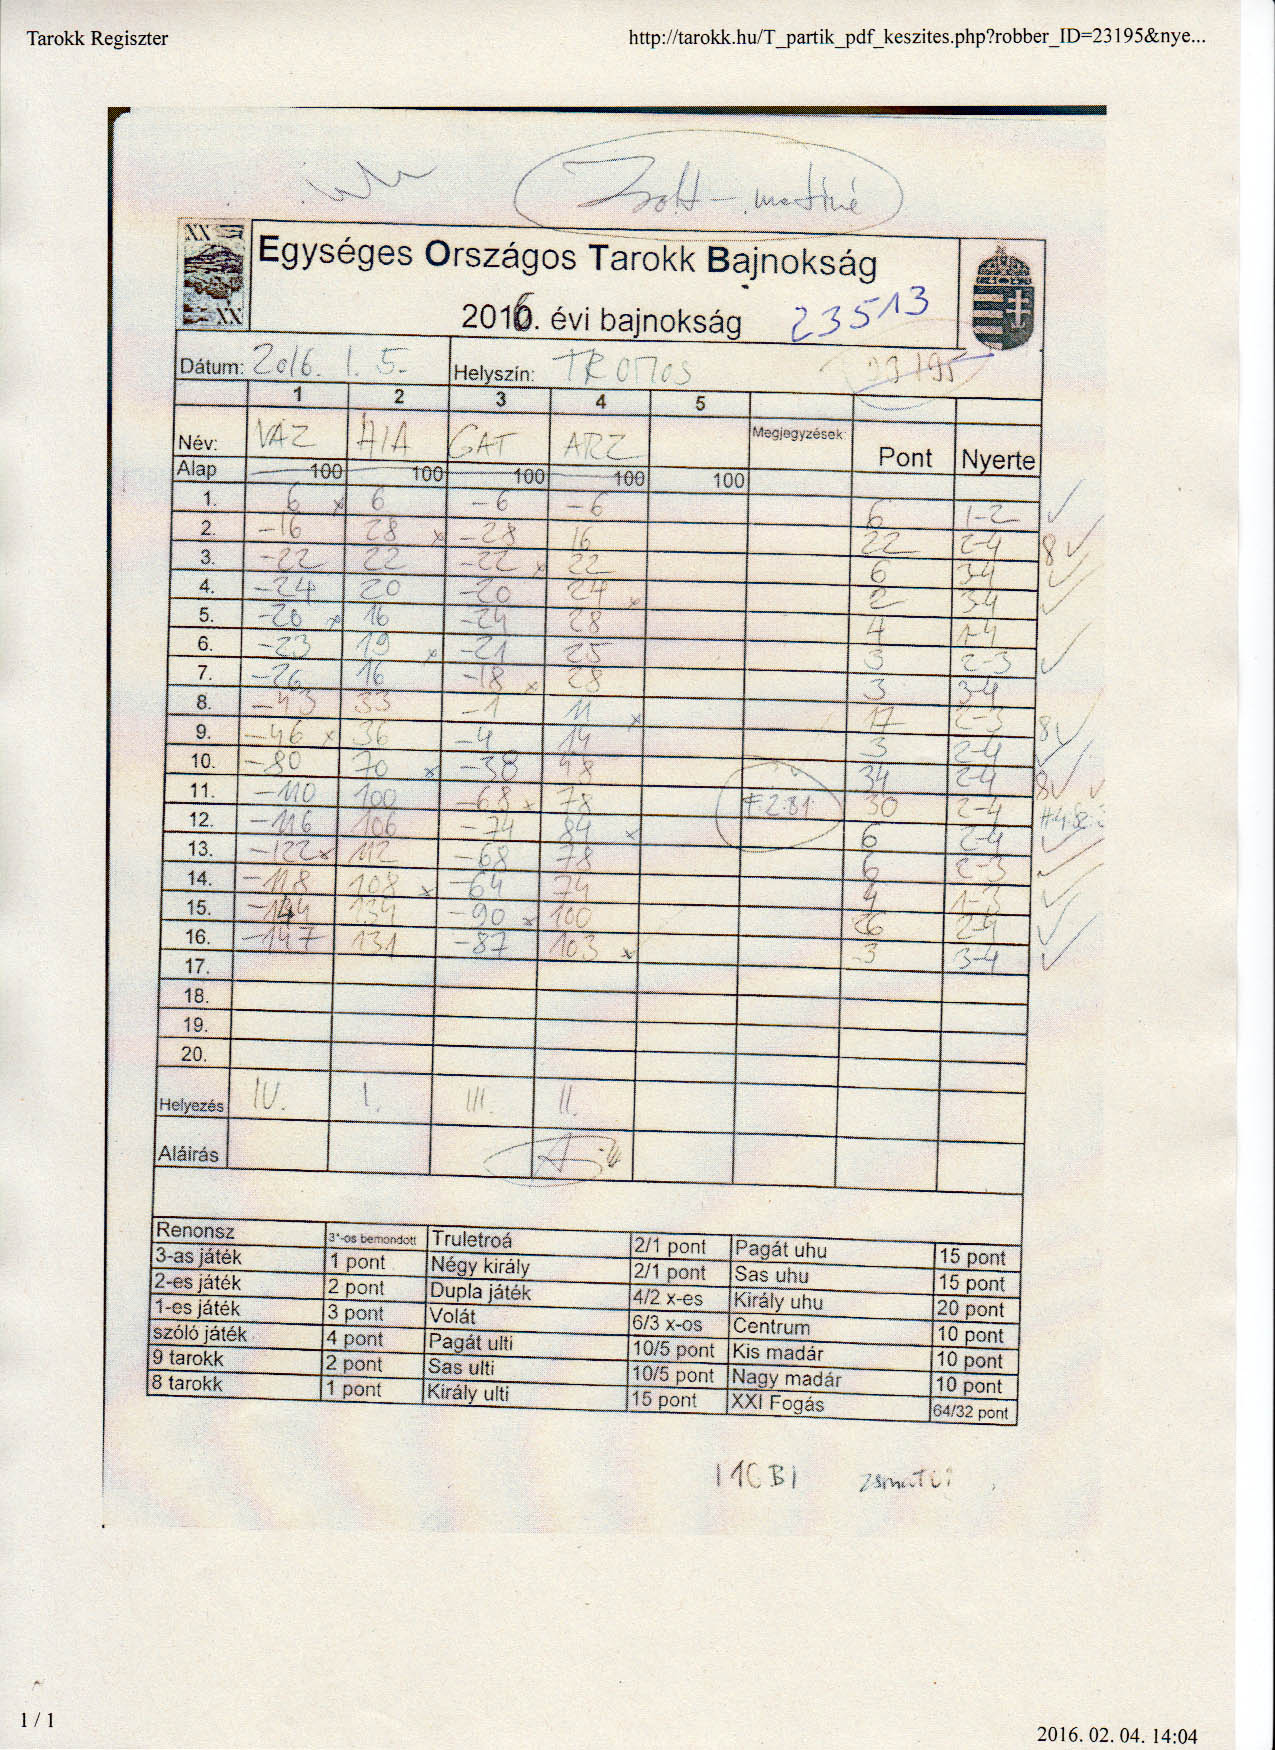 Tarokk Regiszter http://tarokk.hu/T_partik_pdf_keszites.php?robber_ID=23195&nye...
Zsolt - matiné
XX
Egységes Országos Tarokk Bajnokság
XX
2016. évi bajnokság 23513
Dátum: 2016. 1. 5. Helyszín: 23195
1 2 3 4 5
Név: VÁZ GAT ARZ Megjegyzések: Pont Nyerte
Alap 100 100 100 100 100
1. 6 x 6 -6 -6 6 1-2
2. -16 28 x -28 16 22 2-4 8
3. -22 22 -22 x 22 6 3-4
4. -24 20 -20 24 x 2 3-4
5. -20 x 16 -24 28 4 1-4
6. -23 19 x -21 25 3 2-3
7. -26 16 -18 x 28 3 3-4
8. -43 33 -1 11 x 17 2-3 8
9. -46 x 36 -4 14 3 2-4
10. -80 70 x -38 48 34 2-4 8
11. -110 100 -68 x 78 30 2-4
12. -116 106 -74 84 x 6 2-4
13. -122 x 112 -68 78 6 2-3
14. -118 108 x -64 74 4 1-3
15. -144 134 -90 x 100 26 2-4
16. -147 131 -87 103 x 3 3-4
17.
18.
19.
20.
Helyezés IV. I. III. II.
Aláírás
Renonsz 3*-os bemondott Truletroá 2/1 pont Pagát uhu 15 pont
3-as játék 1 pont Négy király 2/1 pont Sas uhu 15 pont
2-es játék 2 pont Dupla játék 4/2 x-es Király uhu 20 pont
1-es játék 3 pont Volát 6/3 x-os Centrum 10 pont
szóló játék 4 pont Pagát ulti 10/5 pont Kis madár 10 pont
9 tarokk 2 pont Sas ulti 10/5 pont Nagy madár 10 pont
8 tarokk 1 pont Király ulti 15 pont XXI Fogás 64/32 pont
1 / 1
2016. 02. 04. 14:04